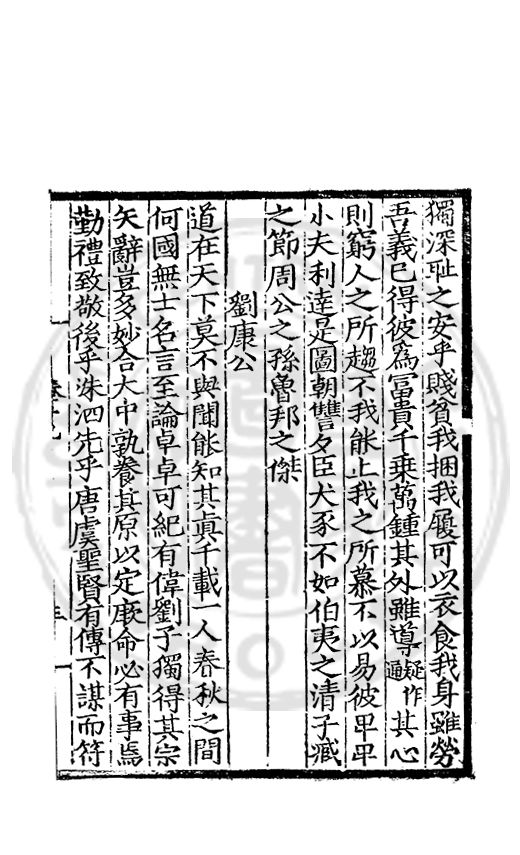 獨深耻之安乎賤貧我捆我屨可以衣食我身雖勞
吾義已得彼爲富貴千乗萬鍾其外雖導疑作遍其心
則窮人之所趨不我能上我之所慕不以易彼卑卑
小夫利達是圖朝讐夕臣犬豕不如伯夷之清子臧
之節周公之孫魯邦之傑
劉康公
道在天下莫不與聞能知其眞千載一人春秋之間
何國無士名言至論卓卓可紀有偉劉子獨得其宗
矢辭豈多妙合大中孰養其原以定厥命必有事焉
勤禮致敬後乎洙泗先乎唐虞聖賢有傳不謀而符